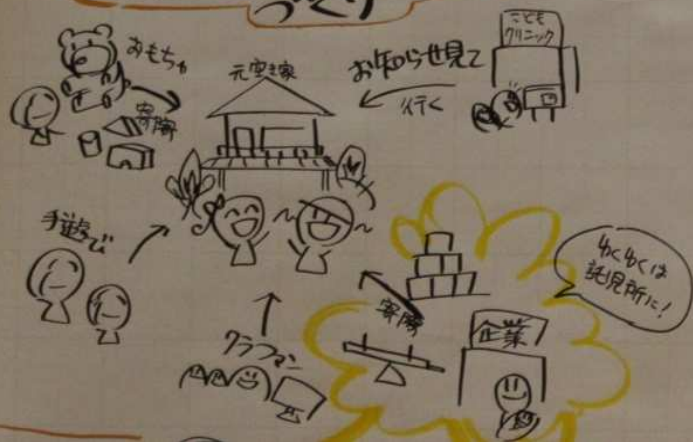 づくり
おもちゃ
寄附
元空き家
お知らせ見て
行く
こども
クリニック
手遊び
クラファン
寄附
企業
ゆくゆくは
託児所に!